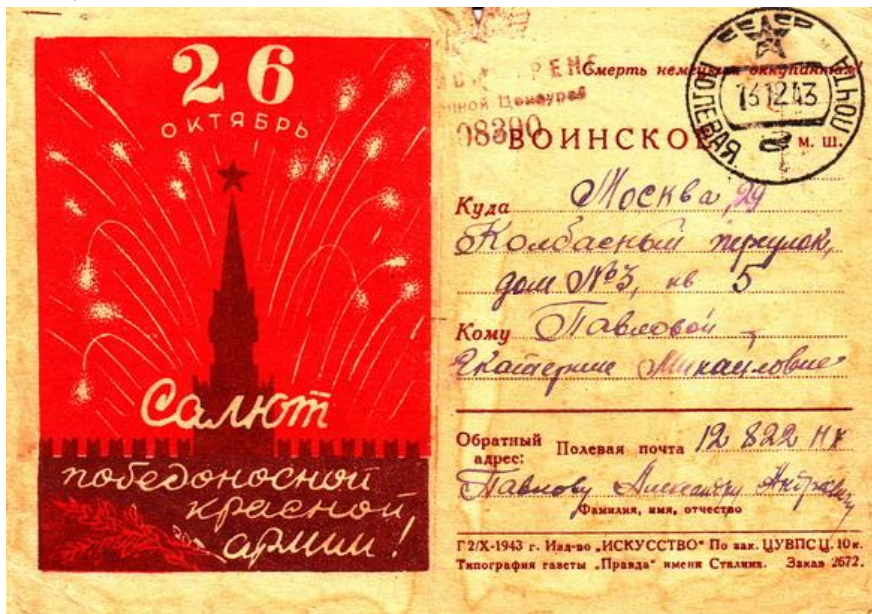 26
ОКТЯБРЬ
Салют
победоносной
красной
армии!
Смерть немецким оккупантам!
08390
ПОЛЕВАЯ ПОЧТА
13 12 43
ВОИНСКОЕ
м. ш.
Куда Москва, 29
Колбасный переулок,
дом №3, кв 5
Кому Павловой
Екатерине Михайловне
Обратный адрес: Полевая почта 12 822 НХ
Павлову Александру Андреевичу
Фамилия, имя, отчество
Г 2/X-1943 г. Изд-во „ИСКУССТВО" По зак. ЦУВПС Ц. 10 к.
Типография газеты „Правда" имени Сталина. Заказ 2672.